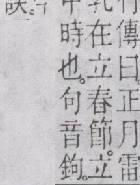 傳曰正月雷
乳在立春節立。
中時也。句音鉤。